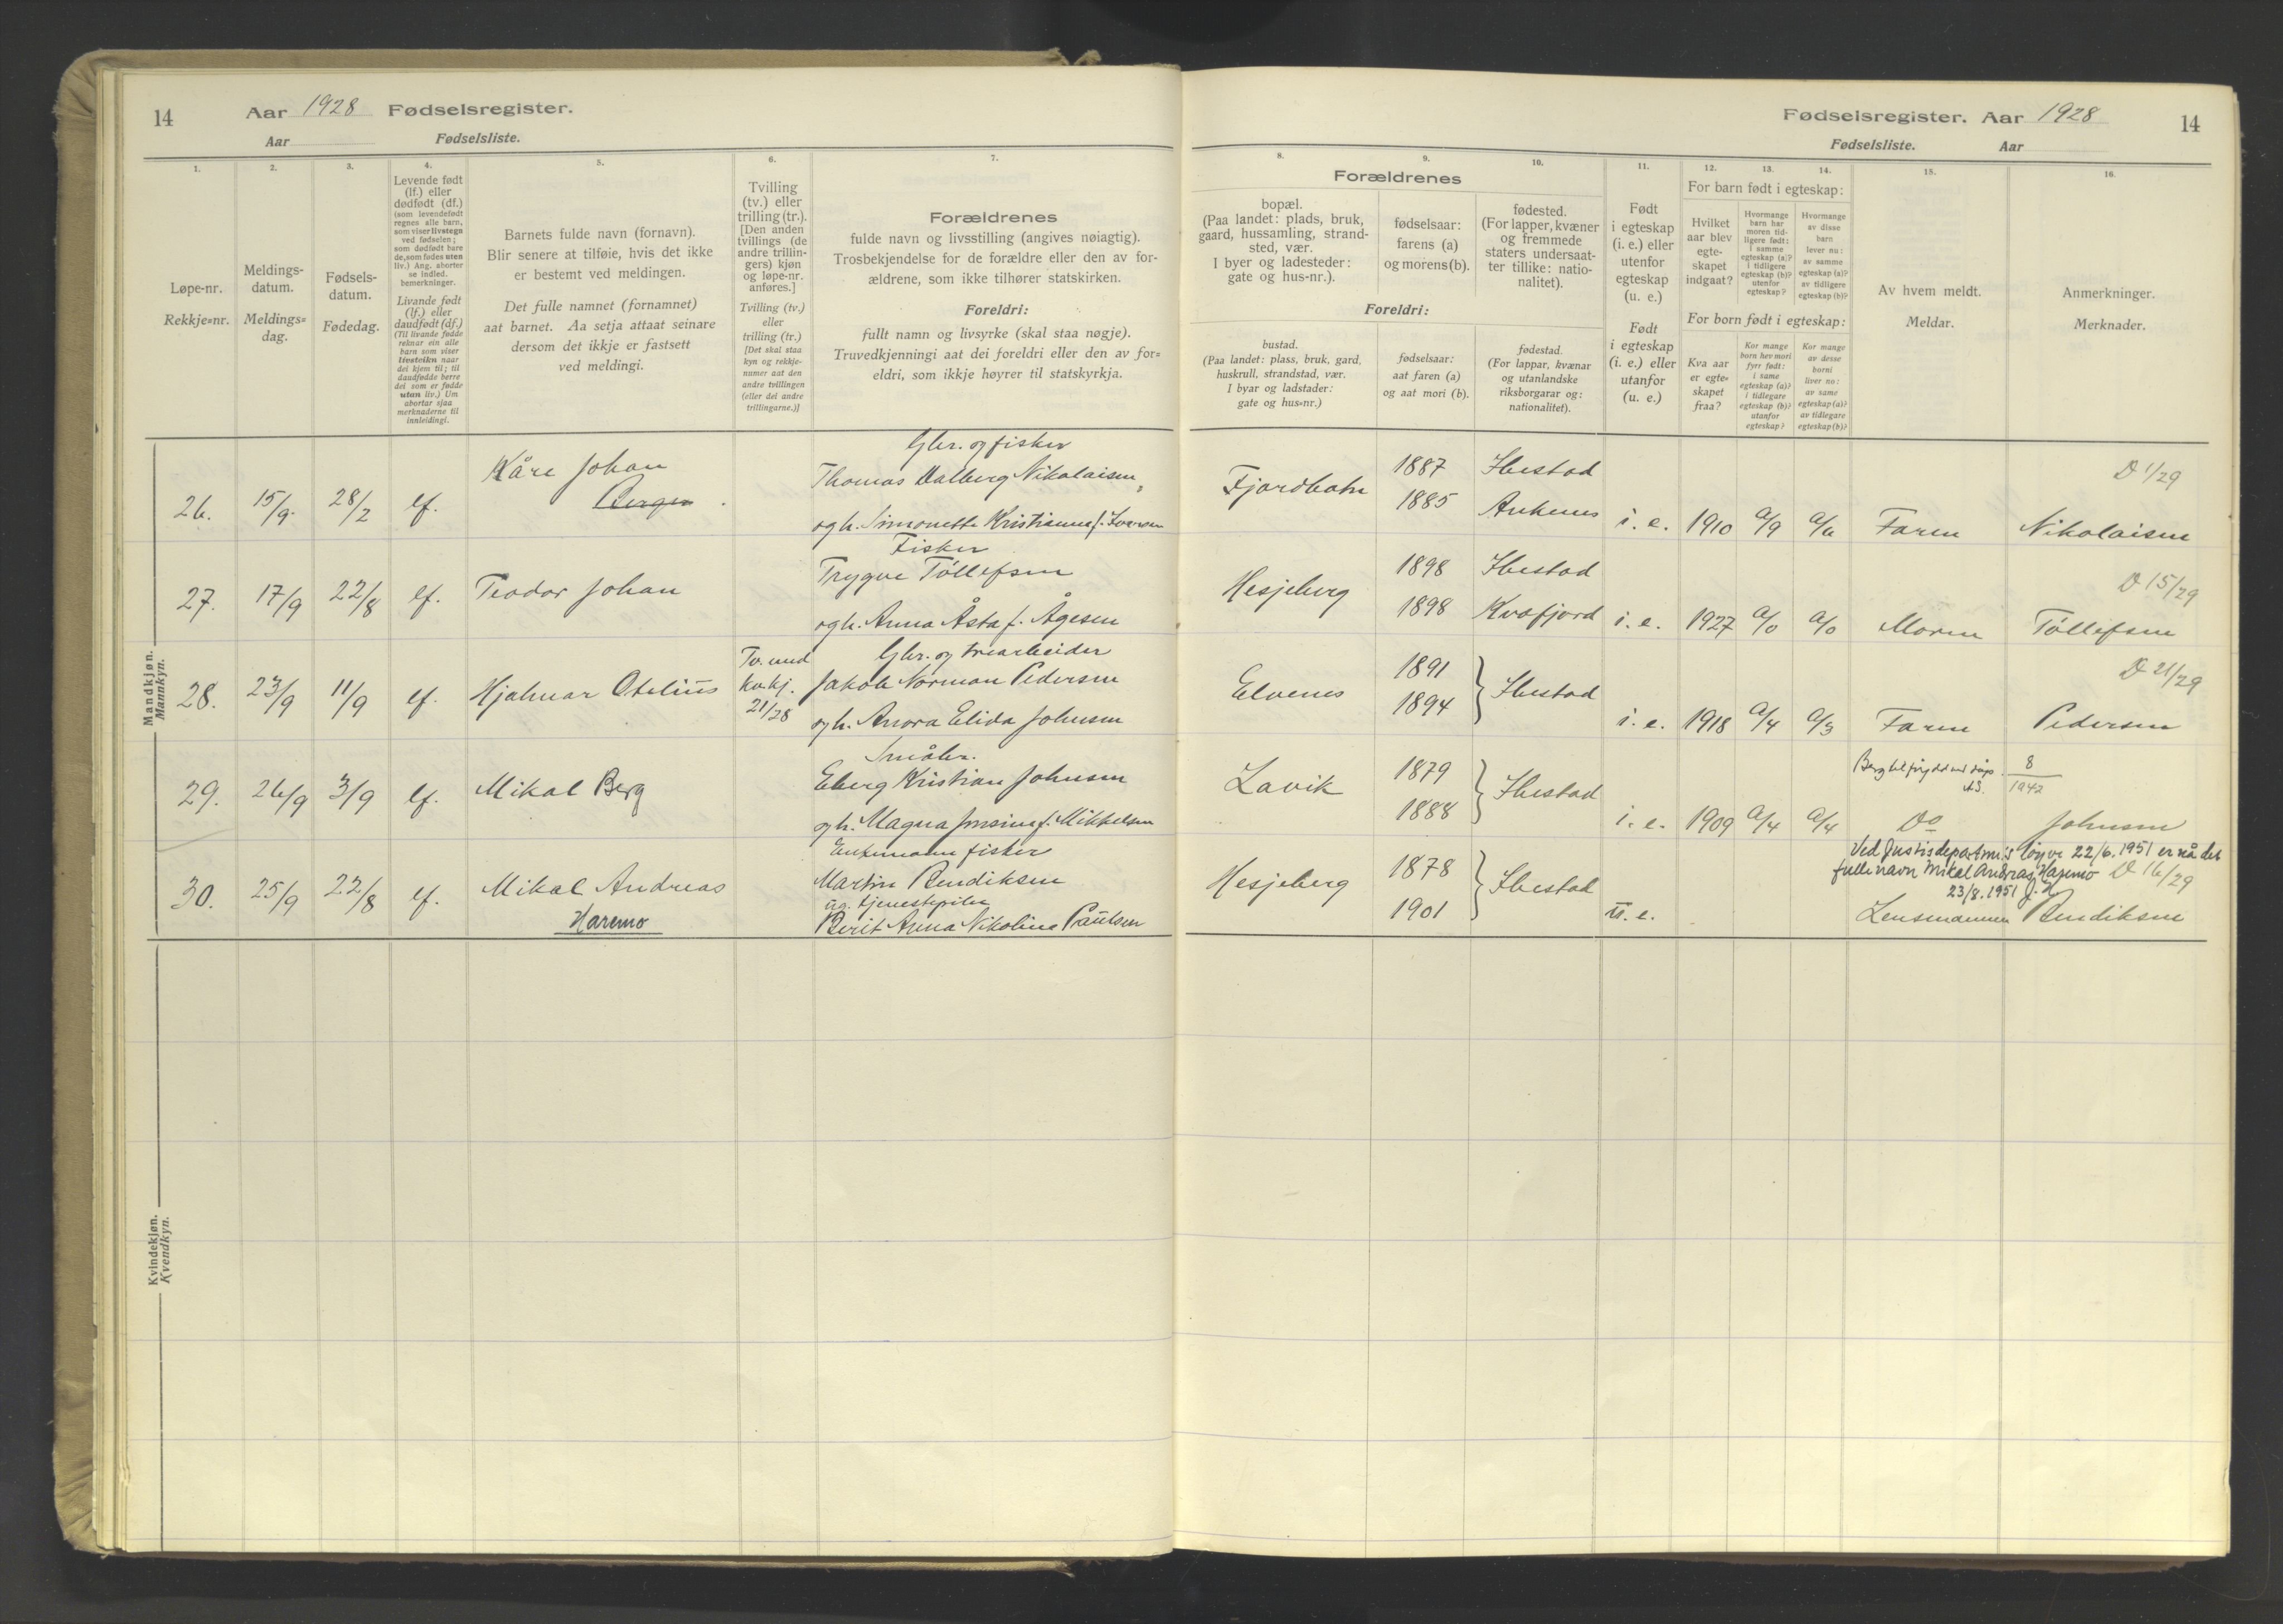 14 Aar 1928 Fødselsregister.
Aar Fødselsliste.
1. 2. 3. 4. 5. 6. 7.
Løpe-nr.
Rekkje=nr.
Meldings-
datum.
Meldings=
dag.
Fødsels-
datum.
Fødedag.
Levende født
(lf.) eller
dødfødt (df.)
(som levendefødt
regnes alle barn,
som viser livstegn
ved fødselen;
som dødfødt bare
de, som fødes uten
liv.) Ang. aborter
se indled.
bemerkninger.
Livande født
(lf.) eller
daudfødt (df.)
(Til livande fødde
reknar ein alle
barn som viser
livsteikn naar
dei kjem til; til
daudfødde berre
dei som er fødde
utan liv.) Um
abortar sjaa
merknaderne til
innleidingi.
Barnets fulde navn (fornavn).
Blir senere at tilføie, hvis det ikke
er bestemt ved meldingen.
Det fulle namnet (fornamnet)
aat barnet. Aa setja attaat seinare
dersom det ikkje er fastsett
ved meldingi.
Tvilling
(tv.) eller
trilling (tr.).
[Den anden
tvillings (de
andre trillin-
gers) kjøn
og løpe-nr.
anføres.]
Tvilling (tv.)
eller
trilling (tr.)
[Det skal staa
kyn og rekkje-
numer aat den
andre tvillingen
(eller dei andre
trillingarne.)]
Forældrenes
fulde navn og livsstilling (angives nøiagtig).
Trosbekjendelse for de forældre eller den av for-
ældrene, som ikke tilhører statskirken.
Foreldri:
fullt namn og livsyrke (skal staa nøgje).
Truvedkjenningi aat dei foreldri eller den av for=
eldri, som ikkje høyrer til statskyrkja.
Mandkjøn.
Mannkyn.
26. 15/9. 28/2 lf. Kåre Johan
Berger
Gbr. og fisker
Thomas Dalberg Nikolaisen,
og h. Simonette Kristianna f. Iversen
27. 17/9 22/8 lf. Teodor Johan
Fisker
Trygve Tøllefsen
og h. Anna Åsta f. Ågesen
28. 23/9 11/9 lf. Hjalmar Otelius
Tv. med
kv.kj.
21/28
Gbr. og trearbeider
Jakob Norman Pedersen
og h. Anora Elida Johnsen
29. 26/9 3/9 lf. Mikal Berg
Småbr.
Eberg Kristian Johnsen
og h. Magna Jensine f. Mikkelsen
30. 25/9 22/8 lf. Mikal Andreas
Haremo
Enkemann fisker
Martin Bendiksen
ug. tjenestepike
Berit Anna Nikoline Paulsen
Kvindekjøn.
Kvendkyn.
Fødselsregister. Aar 1928 14
Fødselsliste. Aar
8. 9. 10. 11. 12. 13. 14. 15. 16.
Forældrenes
bopæl.
(Paa landet: plads, bruk,
gaard, hussamling, strand-
sted, vær.
I byer og ladesteder:
gate og hus-nr.).
fødselsaar:
farens (a)
og morens (b).
fødested.
(For lapper, kvæner
og fremmede
staters undersaat-
ter tillike: natio-
nalitet).
Foreldri:
bustad.
(Paa landet: plass, bruk, gard,
huskrull, strandstad, vær.
I byar og ladstader:
gate og hus=nr.)
fødselsaar:
aat faren (a)
og aat mori (b).
fødestad.
(For lappar, kvænar
og utanlandske
riksborgarar og:
nationalitet).
Født
i egteskap
(i. e.) eller
utenfor
egteskap
(u. e.)
Født
i egteskap
(i. e.) eller
utanfor
(u. e.)
For barn født i egteskap:
Hvilket
aar blev
egte-
skapet
indgaat?
Hvormange
barn har
moren tid-
ligere født:
i samme
egteskap (a)?
i tidligere
egteskap (b)?
utenfor
egteskap?
Hvormange
av disse
barn
lever nu:
av samme
egteskap (a)?
av tidligere
egteskap (b)?
For born født i egteskap:
Kva aar
er egte=
skapet
fraa?
Kor mange
born hev mori
fyrr født:
i same
egteskap (a)?
i tidlegare
egteskap (b)?
utanfor
egteskap?
Kor mange
av desse
borni
liver no:
av same
egteskap (a)?
av tidlegare
egteskap (b)?
Av hvem meldt.
Meldar.
Anmerkninger.
Merknader.
Fjordbotn 1887 Ibestad
1885 Ankenes i. e. 1910 a/9 a/6 Faren Nikolaisen
D 1/29
Hesjeberg 1898 Ibestad
1898 Kvæfjord i. e. 1927 a/0 a/0 Moren Tøllefsen
D 15/29
Elvenes 1891
1894 Ibestad i. e. 1918 a/4 a/3 Faren Pedersen
D 21/29
Lavik 1879
1888 Ibestad i. e. 1909 a/4 a/4 Do Johnsen
Berg tilføyd ved dåps
8
1942
Hesjeberg 1878
1901 Ibestad u. e.
Ved Justisdepartm's løyve 22/6. 1951 er nå det
fulle navn Mikal Andreas Haremo D 16/29
23/8. 1951
Lensmannen Bendiksen